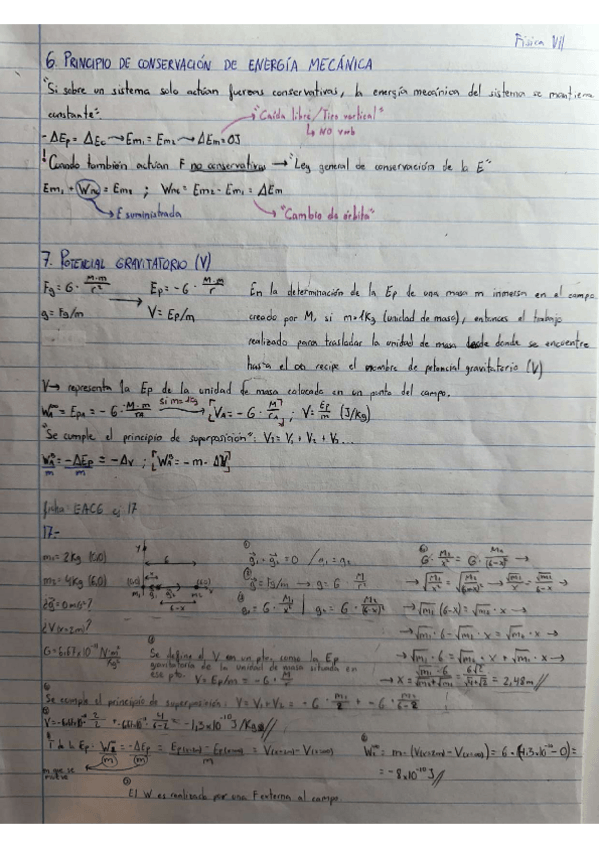 Física VII
6. PRINCIPIO DE CONSERVACIÓN DE ENERGÍA MECÁNICA
"Si sobre un sistema solo actúan fuerzas conservativas, la energía mecánica del sistema se mantiene
constante".
→ "Caída libre/Tiro vertical"
↳ NO Vorb
-ΔEp = ΔEc → Em1 = Em2 → ΔEm = 0J
↓ Cuando también actúan F no conservativas → "Ley general de conservación de la E"
Em1 + Wnc = Em2 ; Wnc = Em2 - Em1 = ΔEm
→ E suministrada → "Cambio de órbita"
7. POTENCIAL GRAVITATORIO (V)
Fg = G · M·m/r² → Ep = -G · M·m/r
En la determinación de la Ep de una masa m inmersa en el campo
g = Fg/m V = Ep/m
creado por M, si m = 1Kg (unidad de masa), entonces el trabajo
realizado para trasladar la unidad de masa desde donde se encuentre
hasta el ∞ recibe el nombre de potencial gravitatorio (V)
V → representa la Ep de la unidad de masa colocada en un punto del campo.
W = EpA = -G · M·m/rA si m = 1Kg → [VA = -G · M/rA] ; V = Ep/m (J/kg)
"Se cumple el principio de superposición": VT = V1 + V2 + V3...
W/m = -ΔEp/m = -ΔV ; [W = -m · ΔV]
ficha EAC6 ej 17
17.-
m1 = 2Kg (0,0)
m2 = 4Kg (6,0)
¿g = 0 m/s²?
¿V (r=2m)?
G = 6,67x10⁻¹¹ N·m²/Kg²
y
6
x
6-x
g1 + g2 = 0 / g1 = g2
g = Fg/m → g = G · M/r²
g1 = G · M1/x² | g2 = G · M2/(6-x)²
G · M1/x² = G · M2/(6-x)² →
→ √M1/x² = √M2/(6-x)² → √m1/x = √m2/6-x →
→ √m1 (6-x) = √m2 · x →
→ √m1 · 6 - √m1 · x = √m2 · x →
→ √m1 · 6 = √m2 · x + √m1 · x →
→ x = √m1 · 6/√m1+√m2 = 6√2/√4+√2 = 2,48m //
Se define el V en un pto. como la Ep
gravitatoria de la unidad de masa situada en
ese pto. V = Ep/m = -G · M/r
Se cumple el principio de superposición: V = V1 + V2 = -G · m1/2 + -G · m2/6-2
V = -6,67·10⁻¹¹ 2/2 + -6,67·10⁻¹¹ 4/6-2 = -1,3x10⁻¹⁰ J/Kg //
W/m = -ΔEp/m
El W es realizado por una F externa al campo.
= -8x10⁻¹⁰ J //